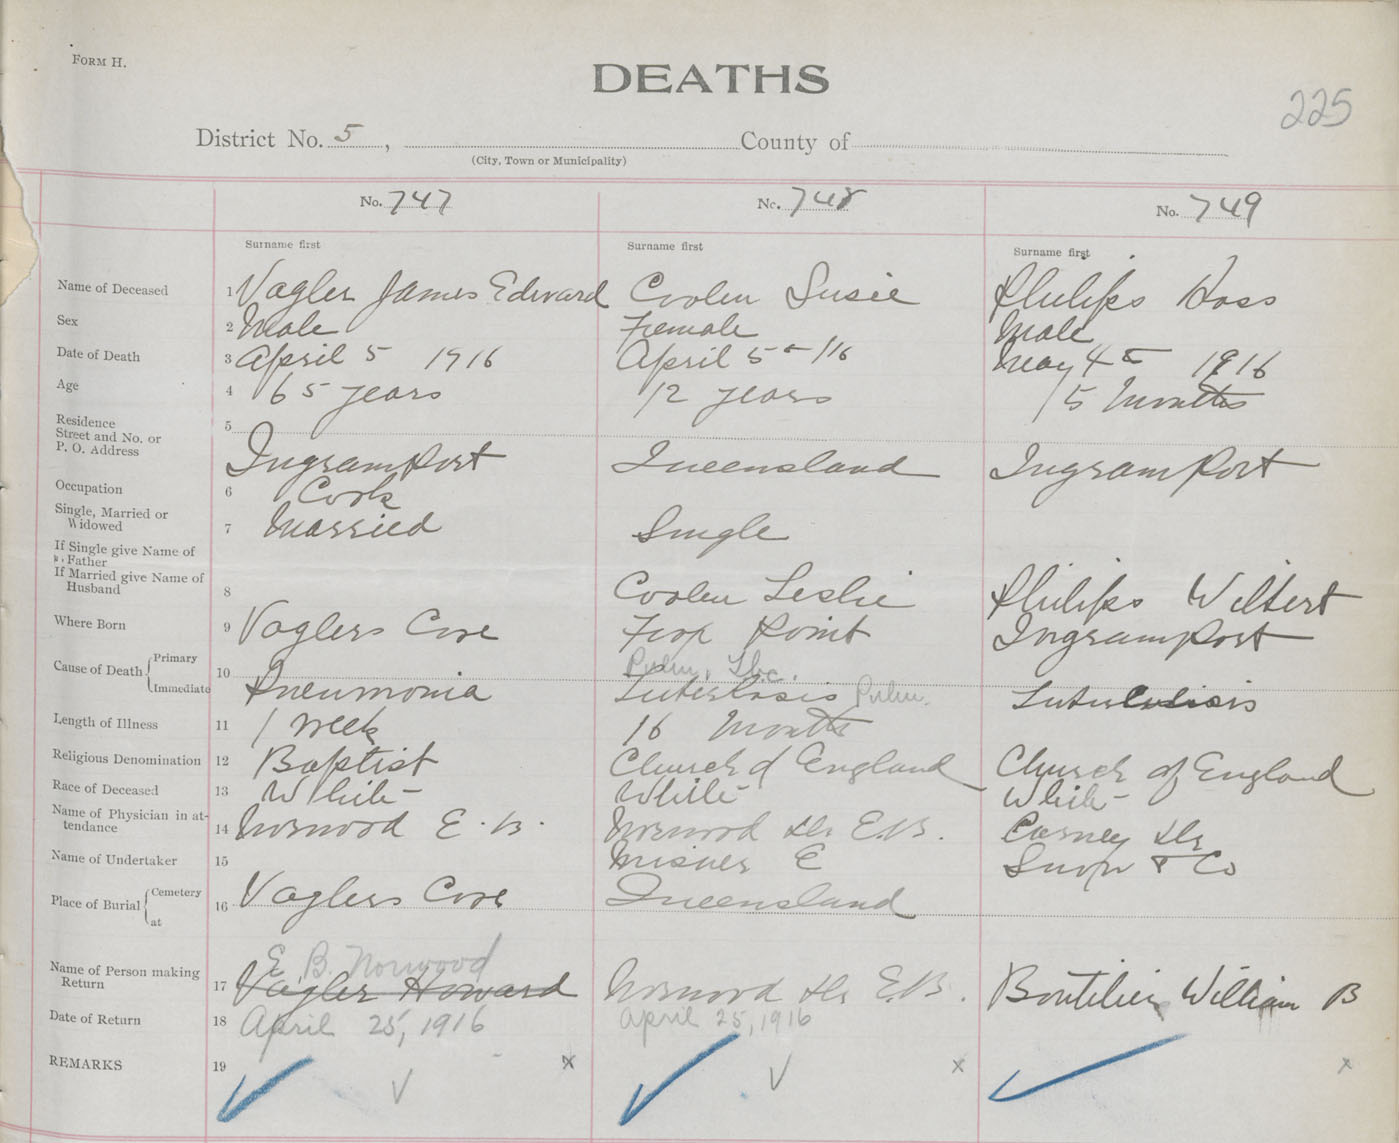 FORM H.
DEATHS
225
District No. 5, County of
(City, Town or Municipality)
No. 747 No. 748 No. 749
Surname first Surname first Surname first
Name of Deceased 1 Vagler James Edward Coolen Susie Philips Hoss
Sex 2 Male Female Male
Date of Death 3 April 5 1916 April 5th /16 May 4th 1916
Age 4 65 years 12 years 15 Months
Residence
Street and No. or
P. O. Address 5 Ingramport Queensland Ingramport
Occupation 6 Cook
Single, Married or
Widowed 7 Married Single
If Single give Name of
Father
If Married give Name of
Husband 8 Coolen Leslie Philips Wilbert
Where Born 9 Vaglers Cove Fox Point Ingramport
Cause of Death Primary 10 Pulm. Tbc.
Immediate Pneumonia Tuberlosis Pulm. Tuberculosis
Length of Illness 11 1 week 16 Months
Religious Denomination 12 Baptist Church of England Church of England
Race of Deceased 13 White White White
Name of Physician in at-
tendance 14 Norwood E. B. Norwood Dr E.B. Carney Dr
Name of Undertaker 15 Misner E Snow & Co
Place of Burial Cemetery
at 16 Vaglers Cove Queensland
E B. Norwood
Name of Person making
Return 17 Vagler Howard Norwood Dr E.B. Boutilier William B
Date of Return 18 April 25, 1916 April 25, 1916
REMARKS 19 x x x